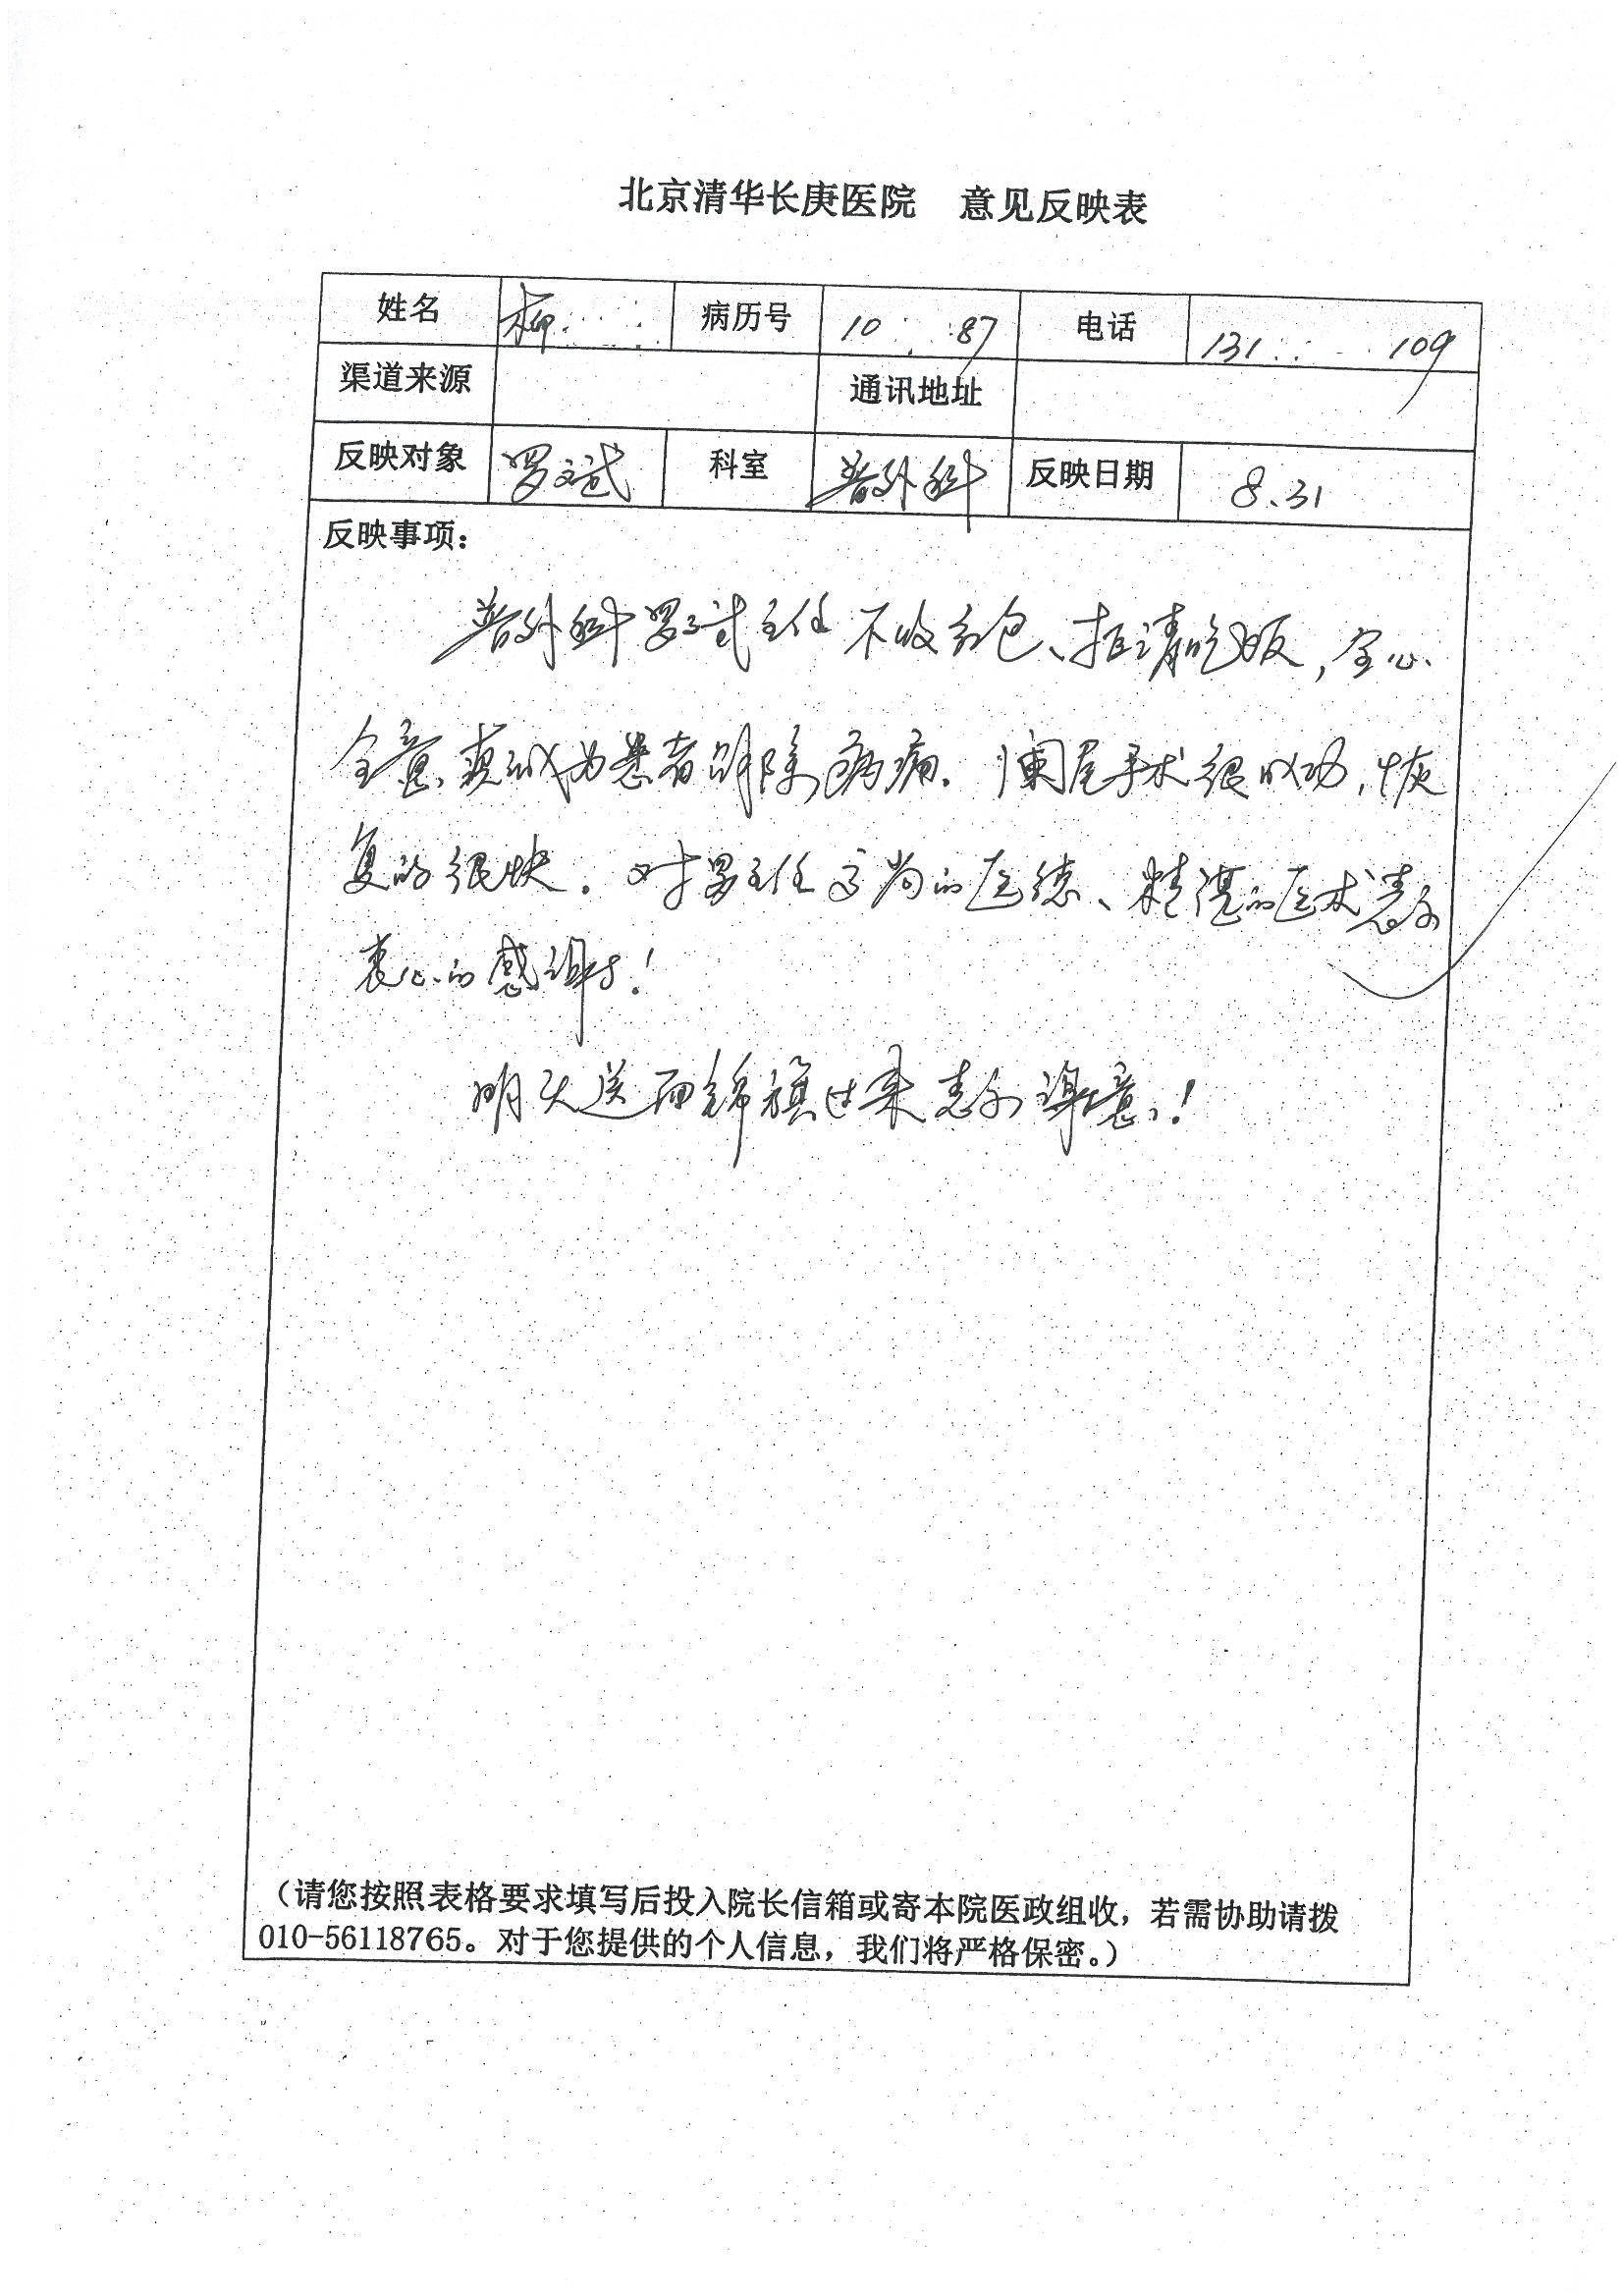 北京清华长庚医院 意见反映表
姓名 柳 病历号 10 87 电话 131 109
渠道来源 通讯地址
反映对象 罗斌 科室 普外科 反映日期 8.31
反映事项：
普外科罗斌主任不收红包、拒请吃饭，全心
全意、真诚为患者解除病痛。阑尾手术很成功，恢
复的很快。对罗主任高尚的医德、精湛的医术表示
衷心的感谢！
明天送面锦旗过来表示谢意！
（请您按照表格要求填写后投入院长信箱或寄本院医政组收，若需协助请拨
010-56118765。对于您提供的个人信息，我们将严格保密。）